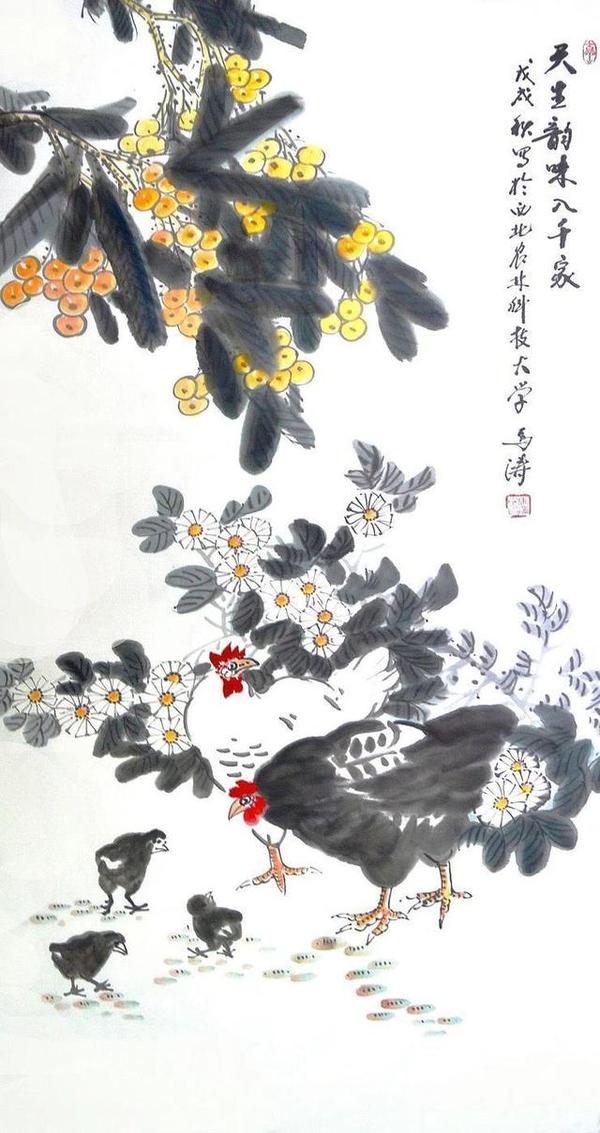 天生韵味入千家
戊戌秋写于西北农林科技大学 马涛